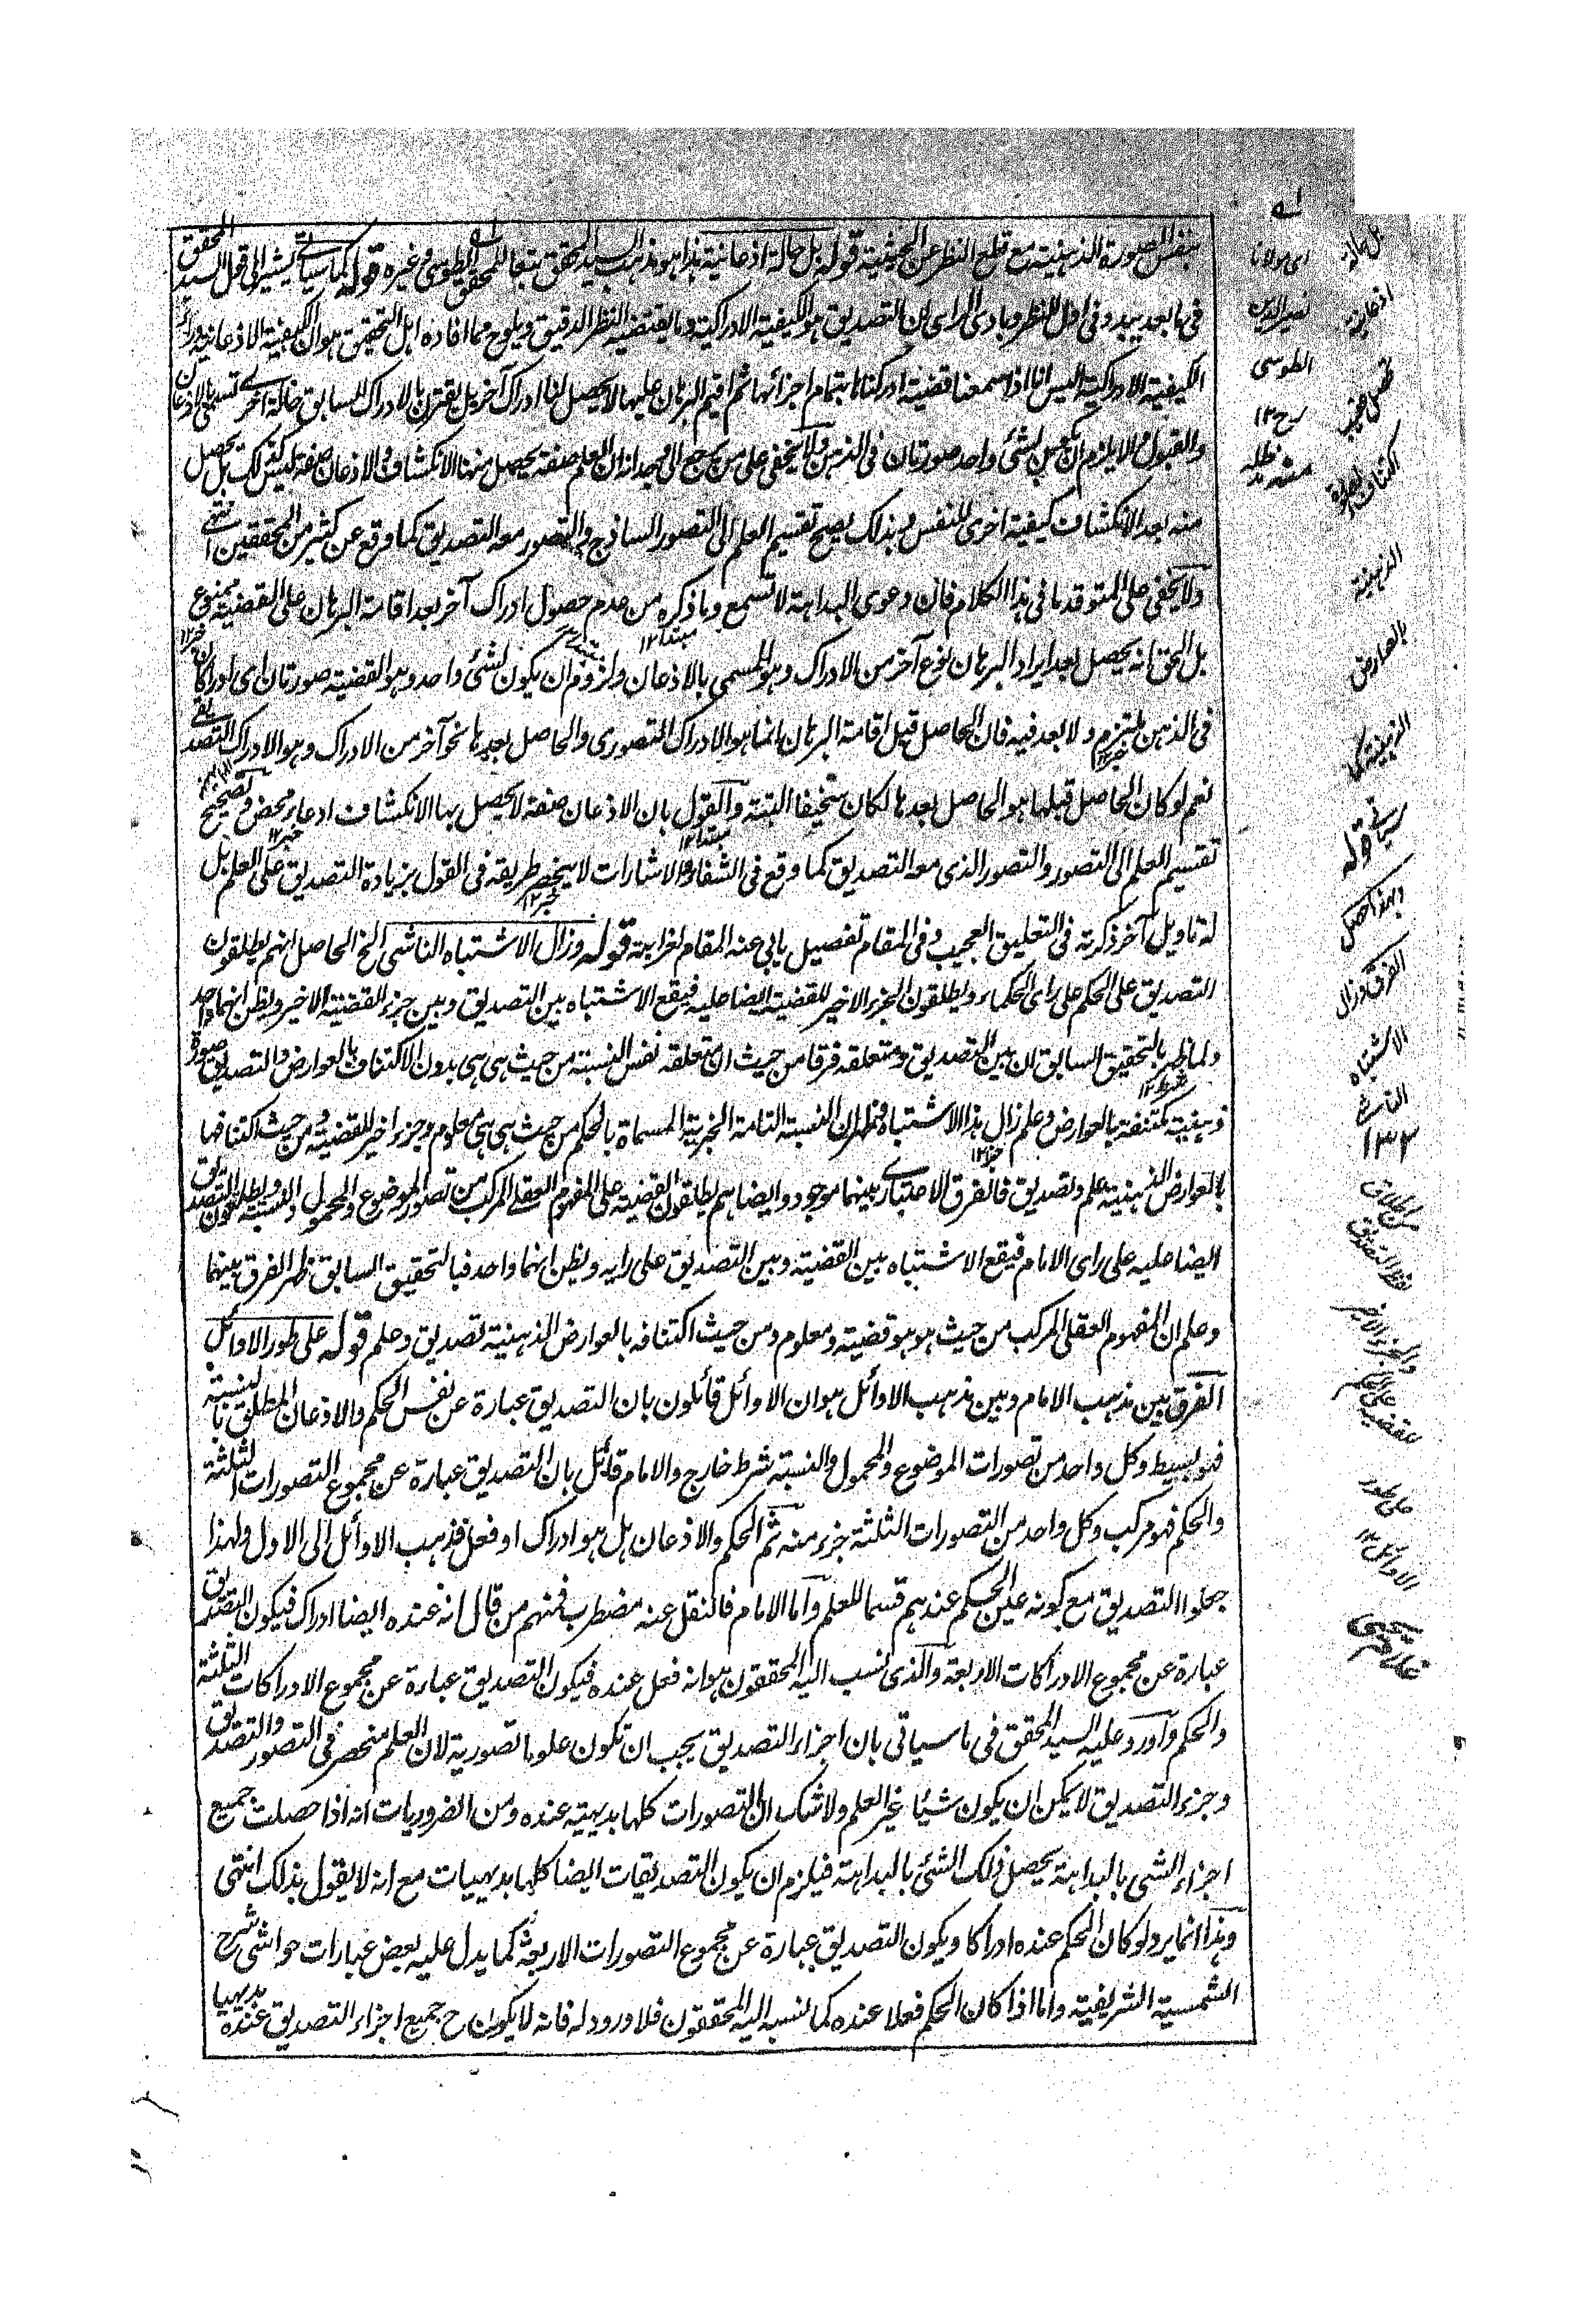 بنفس الصورة الذهنية مع قطع النظر عن الحيثية قوله بل حالة اذعانية هذا هو مذهب السيد المحقق تبعا للمحقق الطوسى وغيره قوله كما سياتى يشير الى قول السيد المحقق
فى ما بعد يبدو فى اول النظر وبادى الراى ان التصديق هو الكيفية الادراكية وما يقتضيه النظر الدقيق ويلوح مما افاده اهل التحقيق هو ان الكيفية الاذعانية وراء
الكيفية الادراكية اليس انا اذا سمعنا قضية ادركناها بتمام اجزائها ثم اقيم البرهان عليها لا يحصل لنا ادراك آخر بل يقترن بالادراك السابق حالة اخرى تسمى بالاذعان
والقبول والا يلزم ان يكون لشئ واحد صورتان فى الذهن ولا يخفى على من يرجع الى وجدانه ان العلم صفة يحصل منها الانكشاف والاذعان صفة ليس كذلك بل يحصل
منه بعد الانكشاف كيفية اخرى للنفس وبذلك يصح تقسيم العلم الى التصور الساذج والتصور معه التصديق كما وقع عن كثير من المحققين انتهى
ولا يخفى على المتوقد ما فى هذا الكلام فان دعوى البداهة لا تسمع وما ذكره من عدم حصول ادراك آخر بعد اقامة البرهان على القضية ممنوع
بل الحق انه يحصل بعد ايراد البرهان نوع آخر من الادراك وهو المسمى بالاذعان ولزوم ان يكون لشئ واحد وهو القضية صورتان اى ادراكان
فى الذهن ملتزم ولا بعد فيه فان الحاصل قبل اقامة البرهان انما هو الادراك التصورى والحاصل بعدها نحو آخر من الادراك وهو الادراك التصديقى
نعم لو كان الحاصل قبلها هو الحاصل بعدها لكان سخيفا البتة والقول بان الاذعان صفة لا يحصل بها الانكشاف ادعاء محض وتصحيح
تقسيم العلم الى التصور والتصور الذى معه التصديق كما وقع فى الشفاء والاشارات لا ينحصر طريقه فى القول بزيادة التصديق على العلم بل
له تاويل آخر ذكرته فى التعليق العجيب وفى المقام تفصيل يابى عنه المقام لغرابته قوله وزال الاشتباه الناشى الخ الحاصل انهم يطلقون
التصديق على الحكم على راى الحكماء ويطلقون الجزء الاخير للقضية ايضا عليه فيقع الاشتباه بين التصديق وبين جزء القضية الاخير ويظن انهما واحد
ولما ظهر بالتحقيق السابق ان بين التصديق ومتعلقه فرقا من حيث ان متعلقه نفس النسبة من حيث هى هى بدون الاكتناف بالعوارض والتصديق صورة
ذهنية مكتنفة بالعوارض وعلم زال هذا الاشتباه وظهر ان النسبة التامة الخبرية المسماة بالحكم من حيث هى هى معلوم وجزء اخير للقضية ومن حيث اكتنافها
بالعوارض الذهنية علم وتصديق فالفرق الاعتبارى بينهما موجود وايضا هم يطلقون القضية على المفهوم العقلى المركب من تصور الموضوع والمحمول والنسبة ويطلقون التصديق
ايضا عليه على راى الامام فيقع الاشتباه بين القضية وبين التصديق على رايه ويظن انهما واحد فبالتحقيق السابق ظهر الفرق بينهما
وعلم ان المفهوم العقلى المركب من حيث هو هو قضية ومعلوم ومن حيث اكتنافه بالعوارض الذهنية تصديق وعلم قوله على طور الاوائل
الفرق بين مذهب الامام وبين مذهب الاوائل هو ان الاوائل قائلون بان التصديق عبارة عن نفس الحكم والاذعان المطلق بالنسبة
فهو بسيط وكل واحد من تصورات الموضوع والمحمول والنسبة شرط خارج والامام قائل بان التصديق عبارة عن مجموع التصورات الثلثة
والحكم فهو مركب وكل واحد من التصورات الثلثة جزء منه ثم الحكم والاذعان هل هو ادراك او فعل فذهب الاوائل الى الاول ولهذا
جعلوا التصديق مع كونه عين الحكم عندهم قسما للعلم واما الامام فالنقل عنه مضطرب فمنهم من قال انه عنده ايضا ادراك فيكون التصديق
عبارة عن مجموع الادراكات الاربعة والذى نسب اليه المحققون هو انه فعل عنده فيكون التصديق عبارة عن مجموع الادراكات الثلثة
والحكم واورد عليه السيد المحقق فى ما سياتى بان اجزاء التصديق يجب ان تكون علوما تصورية لان العلم منحصر فى التصور والتصديق
وجزء التصديق لا يمكن ان يكون شيئا غير العلم ولا شك ان التصورات كلها بديهية عنده ومن الضروريات انه اذا حصلت جميع
اجزاء الشئ بالبداهة يحصل ذلك الشئ بالبداهة فيلزم ان يكون التصديقات ايضا كلها بديهيات مع انه لا يقول بذلك انتهى
وهذا انما يرد لو كان الحكم عنده ادراكا ويكون التصديق عبارة عن مجموع التصورات الاربعة كما يدل عليه بعض عبارات حواشى شرح
الشمسية الشريفية واما اذا كان الحكم فعلا عنده كما نسبه اليه المحققون فلا ورود له فانه لا يكون ح جميع اجزاء التصديق عنده بديهيا
اى مولانا
نصير الدين
الطوسى
رح ١٢
منه مد ظله
بل حالة
اذعانية
الذهنية
بالعوارض
سياتى قوله
وبهذا حصل
الفرق وزال
الاشتباه
الناشى
١٣٢
على طور
الاوائل ١٢